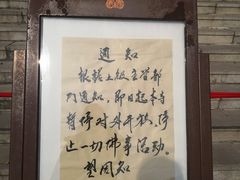 通知
根据上级主管部
门通知，即日起本寺
暂停对外开放，停
止一切佛事活动。
望周知